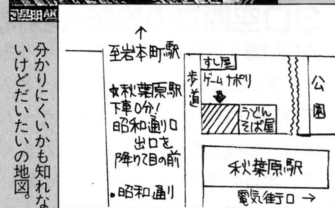 分かりにくいかも知れな
いけどだいたいの地図。
↑
至岩本町駅
☆秋葉原駅
下車0分!
昭和通り口
出口を
降りて目の前
・昭和通り
歩道
すし屋
ゲームナポリ
うどん
そば屋
公園
秋葉原駅
電気街口→